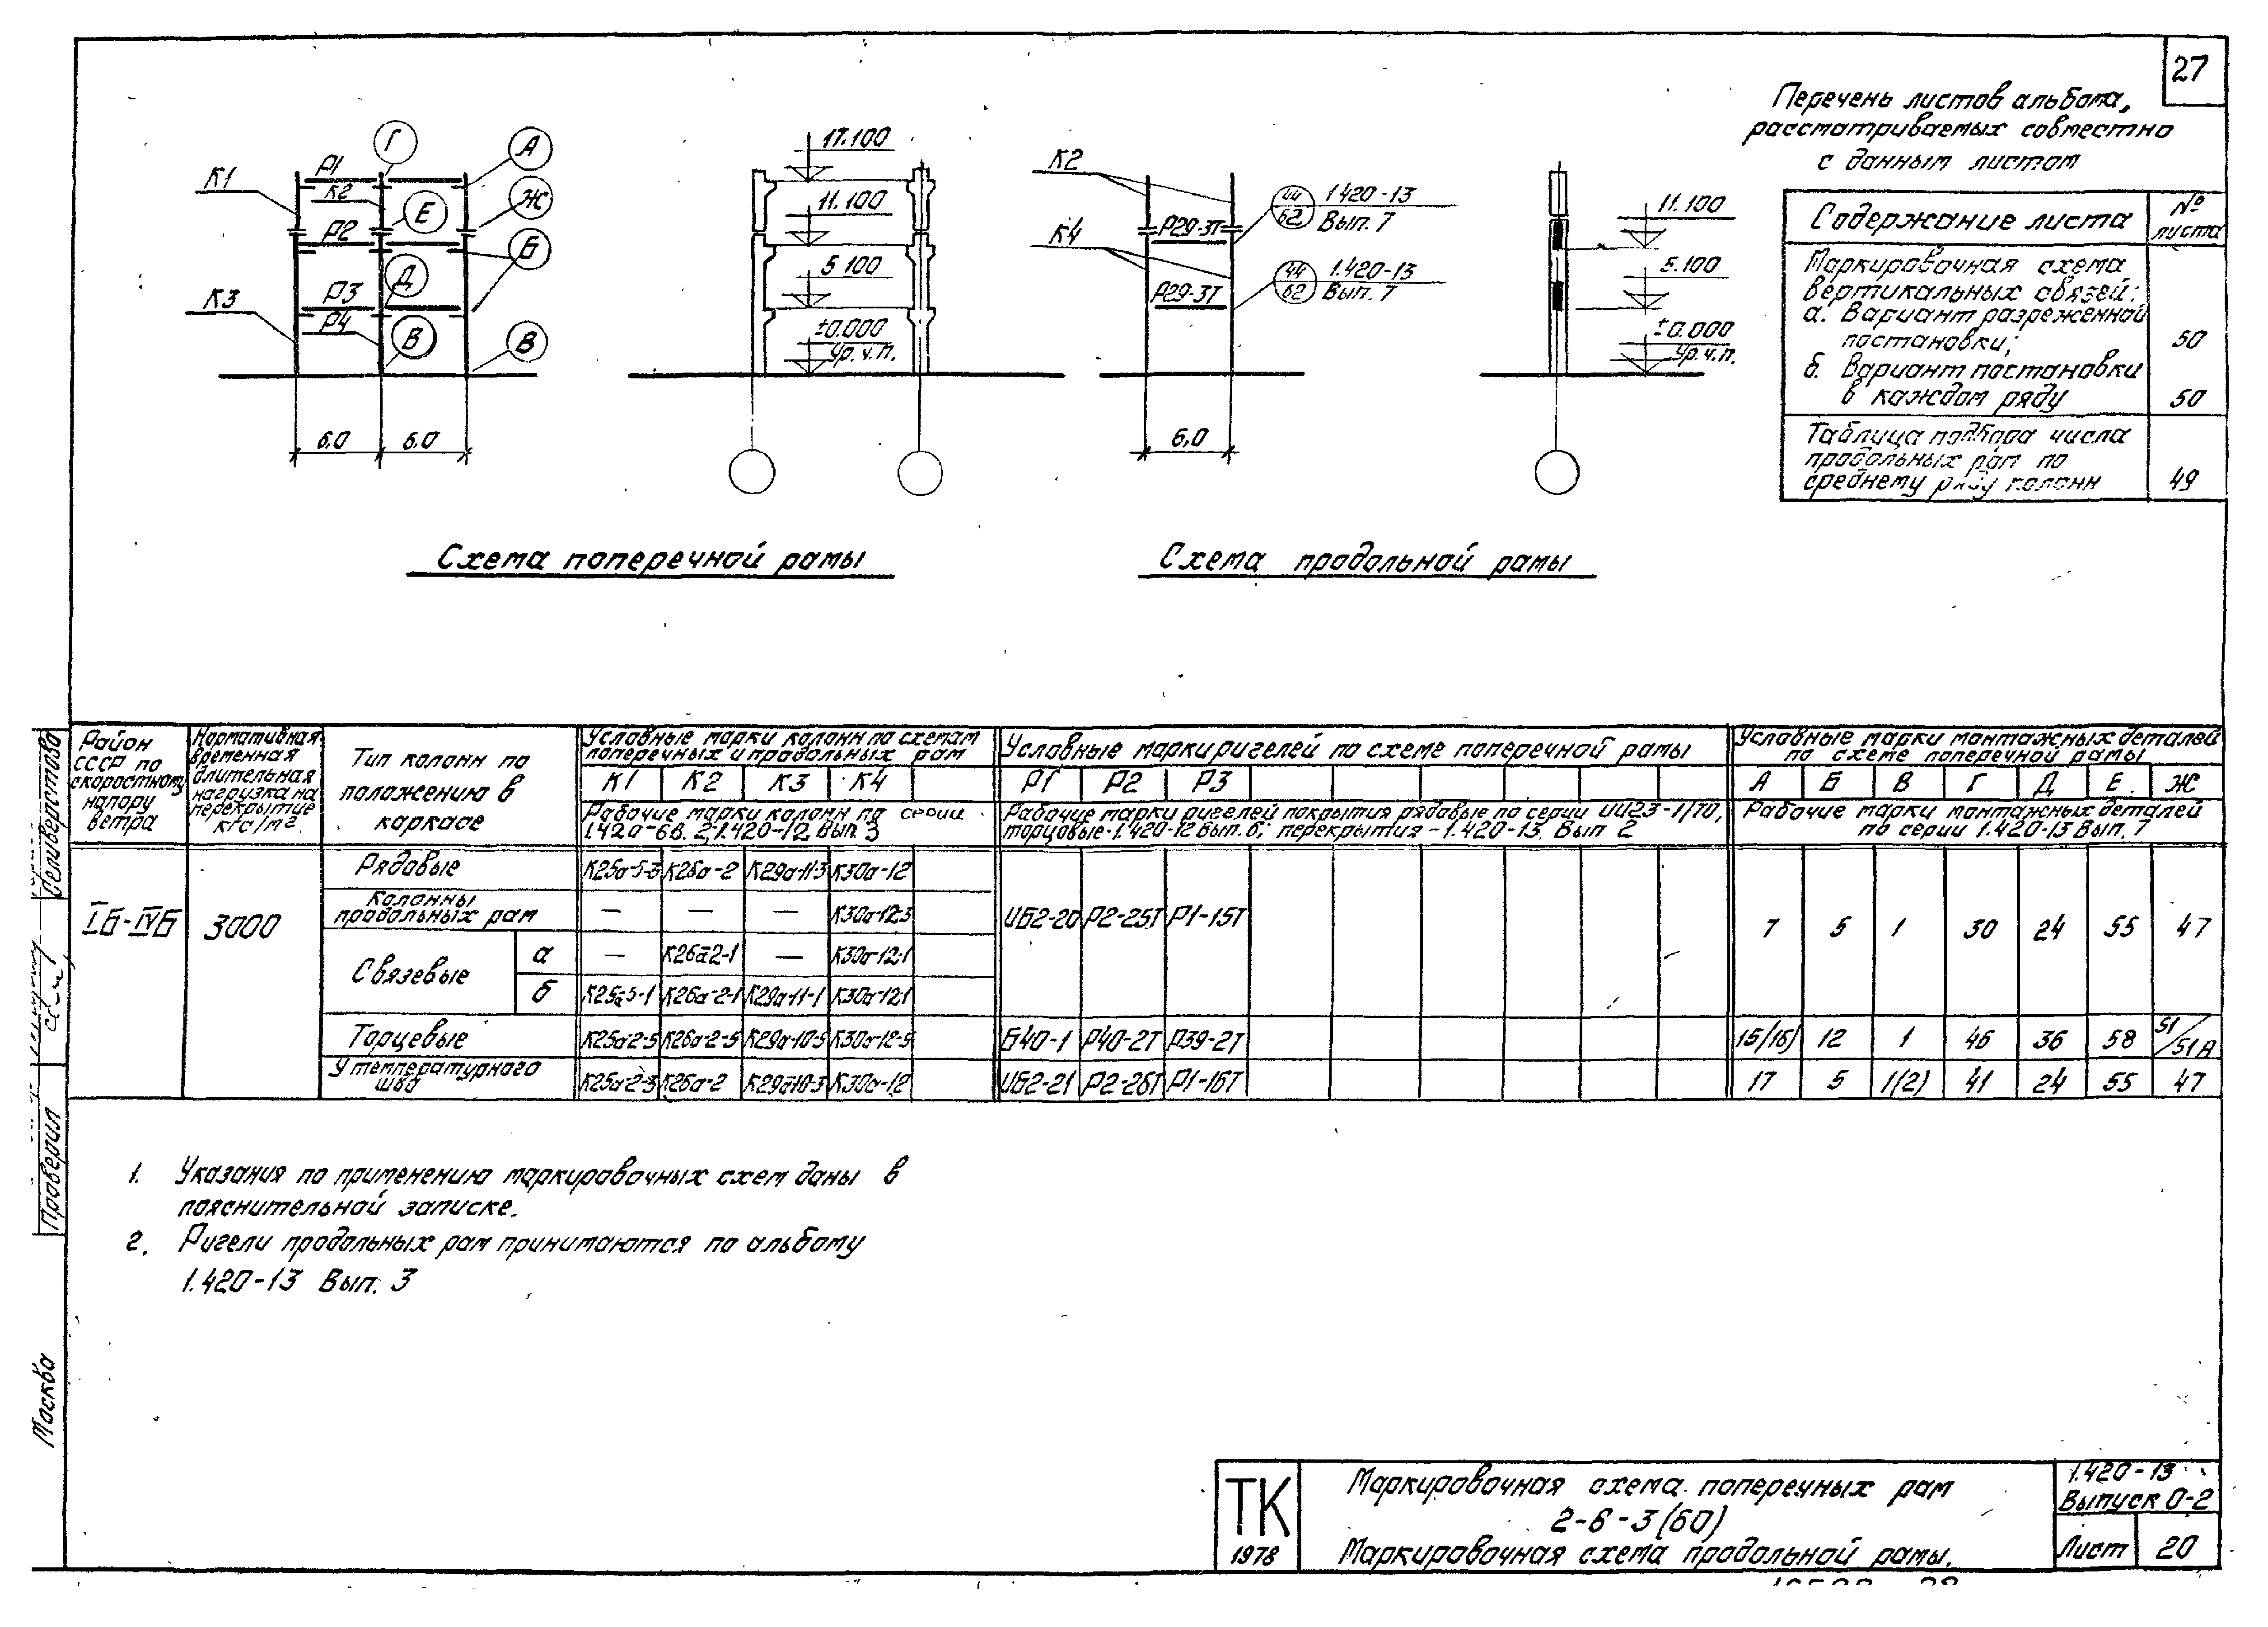 27
Перечень листов альбома,
рассматриваемых совместно
с данным листом
Содержание листа
№ листа
Маркировочная схема
вертикальных связей:
а. Вариант разреженной
постановки;
50
б. Вариант постановки
в каждом ряду
50
Таблица подбора числа
продольных рам по
среднему ряду колонн
49
К1
Р1
К2
Г
А
Е
Ж
Р2
Б
Д
К3
Р3
Р4
В
В
6.0
6.0
17.100
11.100
5.100
±0.000
Ур.ч.п.
К2
К4
Р29-3Т
Р29-3Т
44
62
1.420-13
Вып. 7
44
62
1.420-13
Вып. 7
6,0
11.100
5.100
±0.000
Ур.ч.п.
Схема поперечной рамы
Схема продольной рамы
Район
СССР по
скоростному
напору
ветра
Нормативная
временная
длительная
нагрузка на
перекрытие
кгс/м2
Тип колонн по
положению в
каркасе
Условные марки колонн по схемам
поперечных и продольных рам
К1 К2 К3 К4
Рабочие марки колонн по серии
1.420-6 в. 2; 1.420-12 Вып 3
Условные марки ригелей по схеме поперечной рамы
Р1 Р2 Р3
Рабочие марки ригелей покрытия рядовые по серии ИИ23-1/70,
торцовые-1.420-12 Вып. 6; перекрытия - 1.420-13. Вып 2
Условные марки монтажных деталей
по схеме поперечной рамы
А Б В Г Д Е Ж
Рабочие марки монтажных деталей
по серии 1.420-13 Вып. 7
IБ-IVБ
3000
Рядовые К25а-5-3 К26а-2 К29а-11-3 К30а-12
Колонны
продольных рам — — — К30а-12-3
ИБ2-20 Р2-25Т Р1-15Т 7 5 1 30 24 55 47
Связевые
а — К26а-2-1 — К30а-12-1
б К25а-5-1 К26а-2-1 К29а-11-1 К30а-12-1
Торцевые К25а-2-5 К26а-2-5 К29а-10-5 К30а-12-5 Б40-1 Р40-2Т Р39-2Т 15/16) 12 1 46 36 58 51/51А
У температурного
шва К25а-2-3 К26а-2 К29а-10-3 К30а-12 ИБ2-21 Р2-26Т Р1-16Т 17 5 1(2) 41 24 55 47
1. Указания по применению маркировочных схем даны в
пояснительной записке.
2. Ригели продольных рам принимаются по альбому
1.420-13 Вып. 3
Проверил
Москва
ТК
1978
Маркировочная схема поперечных рам
2-6-3(60)
Маркировочная схема продольной рамы.
1.420-13
Выпуск 0-2
Лист 20